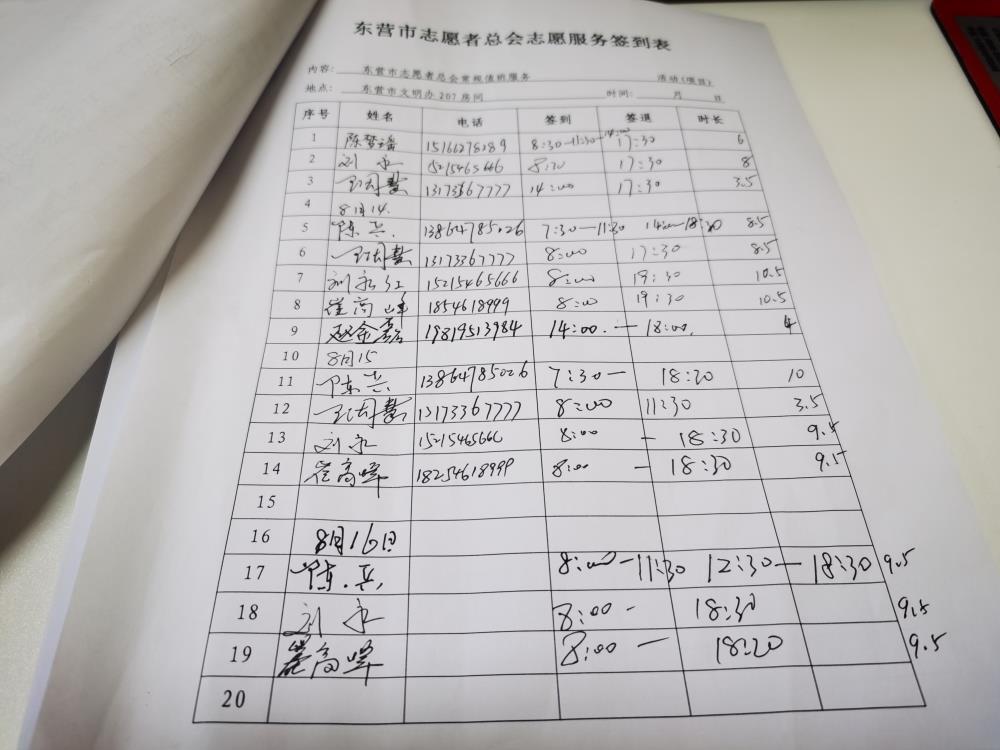 东营市志愿者总会志愿服务签到表
内容: 东营市志愿者总会常规值班服务 活动(项目)
地点: 东营市文明办207房间 时间: 月 日
序号 姓名 电话 签到 签退 时长
1 陈梦瑶 15166278289 8:30-11:30-14:00 17:30 6
2 刘永 15215465666 8:20 17:30 8
3 王同慧 13173367777 14:00 17:30 3.5
4 8月14.
5 陈兵. 13864785026 7:30-11:30 14:00-18:30 8.5
6 王同慧 13173367777 8:00 17:30 8.5
7 刘永红 15215465666 8:00 19:30 10.5
8 崔高峰 1854618999 8:00 19:30 10.5
9 赵金磊 19819513984 14:00.- 18:00. 4
10 8月15
11 陈兵 13864785026 7:30- 18:20 10
12 王同慧 13173367777 8:00 11:30 3.5
13 刘永 15215465666 8:00 - 18:30 9.5
14 崔高峰 18254618999 8:00 - 18:30 9.5
15
16 8月16日
17 陈.兵. 8:00-11:30 12:30-18:30 9.5
18 刘永 8:00- 18:30 9.5
19 崔高峰 8:00- 18:20 9.5
20